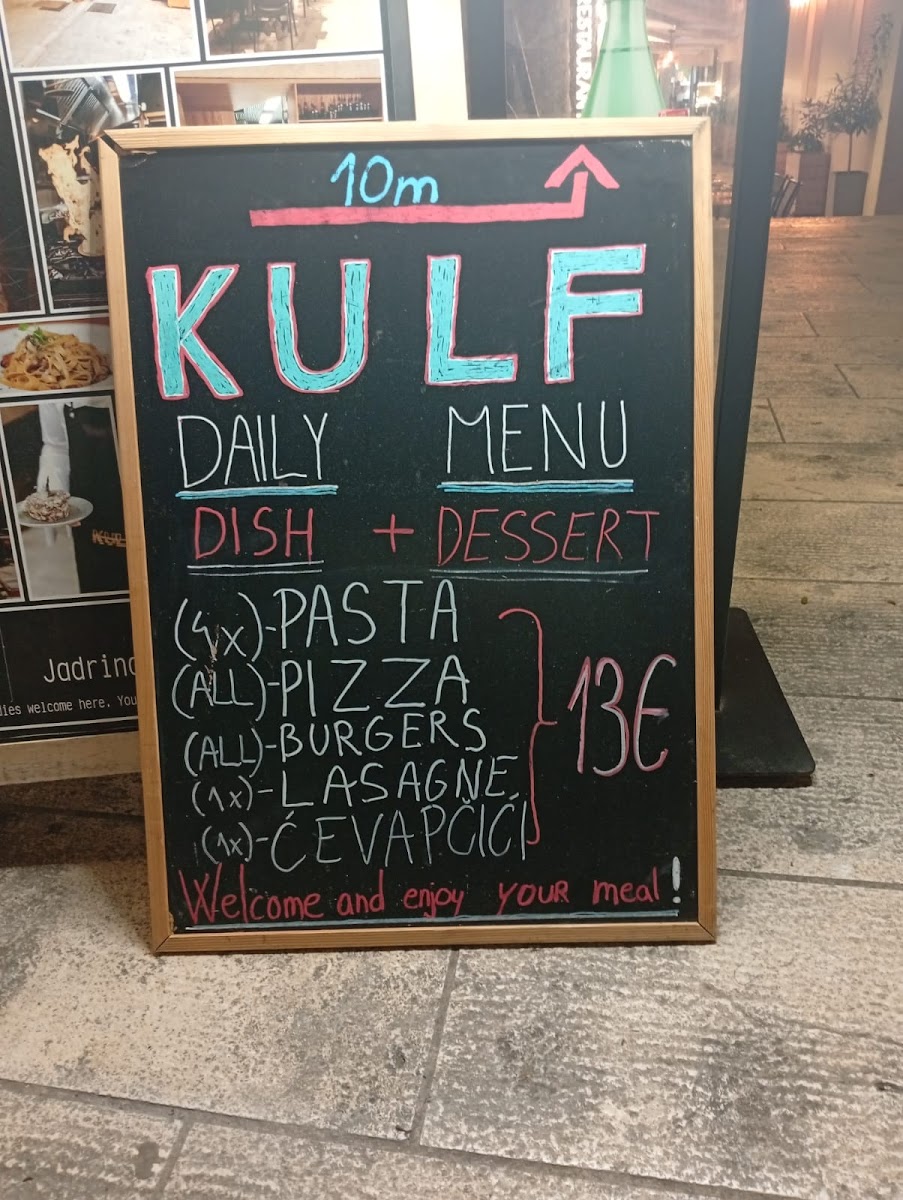 10m
KULF
DAILY MENU
DISH + DESSERT
(4x)-PASTA
(ALL)-PIZZA
(ALL)-BURGERS
(1x)-LASAGNE
(1x)-ĆEVAPČIĆI
13€
Welcome and enjoy YOUR meal!
Jadrino
welcome here. You
KUL
RESTAURAN